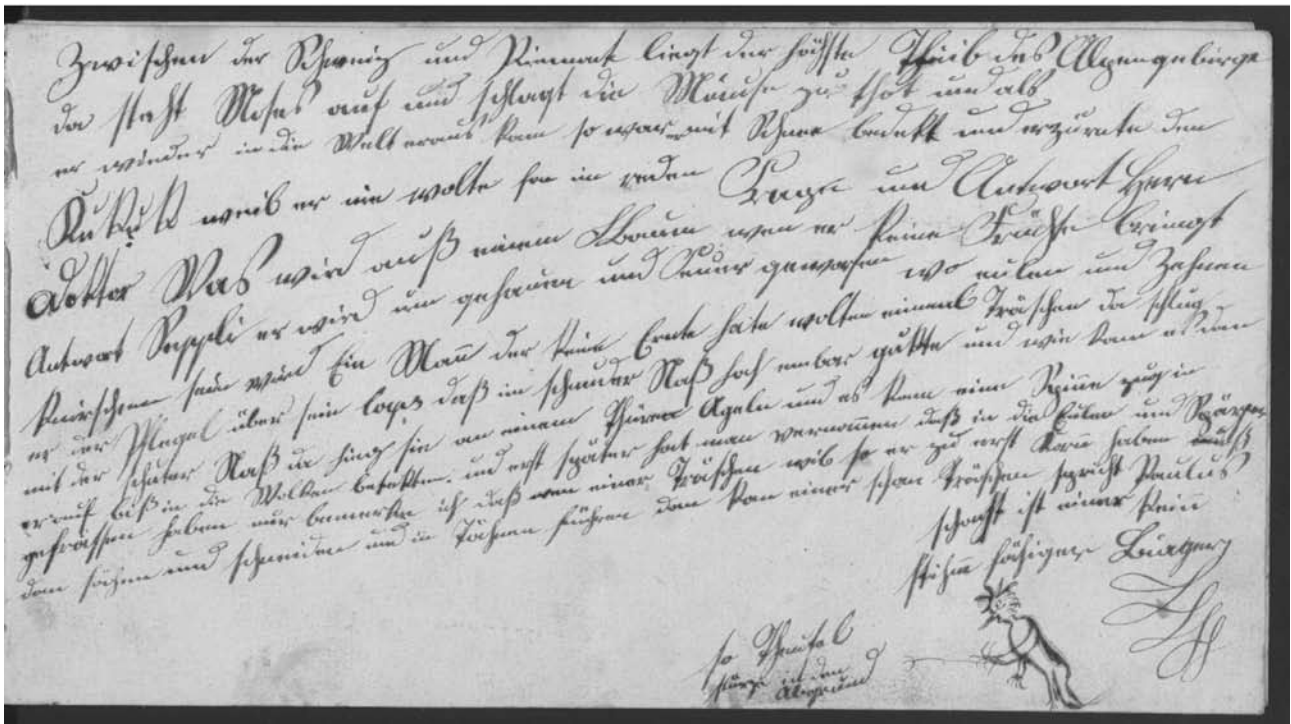 Zwischen der Schweiz und Piemont liegt der höchste Theib des Alpengebürge
da steht Moses auf und schlagt die Mäuse zu thot und als
er wieder in die Welt eraus kam so war mit Schnee bedekt und erzürnte den
Kukuk weib er nie wolte for im reden Frage und Antwort Herr
Doktor Was wird auß einem Bbaum wen er keine Früchte bringt
Antwort Seppli er wird um gehauen und Feuer geworfen wo eulen und Zähnen
knirschenn sein wird Ein Mann der keine Ernte hate wolten einenl Träschen da schlug
er der Pflegel über sein daß im schnuder Naß hoch embor gukte und wie kam es dan
mit der schuder Naß da hing sie an einem Thüren Ageln und es kam eine Spinne zug in
er auf biß in die Wolken und erst später hat man vernommen daß in die Eulen und
gefrässen haben nur bemerke ich daß wen einer Träschen wib so er zu erst Korn haben muß
dan sähen und schneiden und in Tähnen führen dan kan einer schon Träschen spricht Paulus
schacht ist einer kein
stihm fähiger Burger
so Theufel
in den
Abgrund